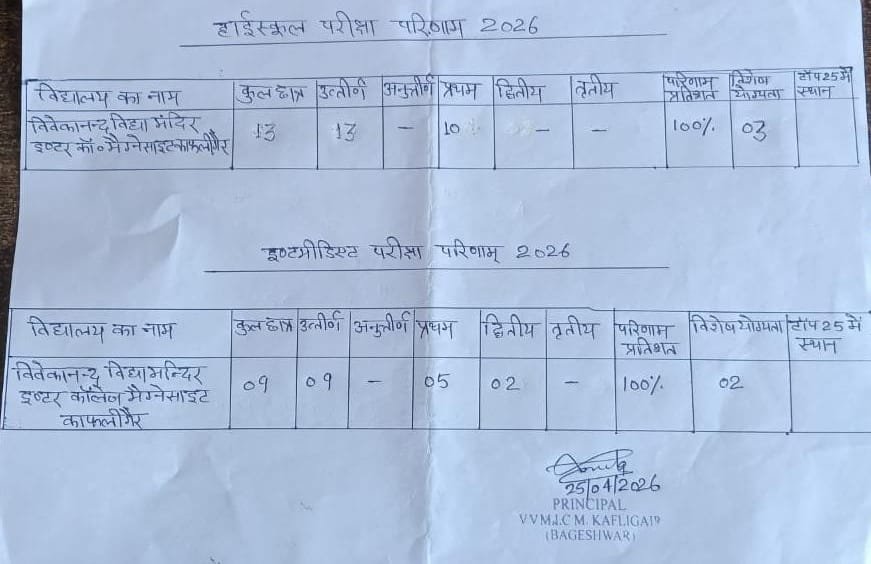 हाईस्कूल परीक्षा परिणाम 2026
विद्यालय का नाम कुल छात्र उत्तीर्ण अनुत्तीर्ण प्रथम द्वितीय तृतीय परिणाम प्रतिशत विशेष योग्यता टॉप 25 में स्थान
विवेकानन्द विद्या मंदिर 13 13 – 10 – – 100% 03
इण्टर कॉ० मैग्नेसाइट काफलीगैर
इण्टमीडिस्ट परीक्षा परिणाम् 2026
विद्यालय का नाम कुल छात्र उत्तीर्ण अनुत्तीर्ण प्रथम द्वितीय तृतीय परिणाम प्रतिशत विशेष योग्यता टॉप 25 में स्थान
विवेकानन्द विद्या मन्दिर 09 09 – 05 02 – 100% 02
इण्टर कॉलेज मैग्नेसाइट
काफलीगैर
25/04/2026
PRINCIPAL
V.V.M.I.C M. KAFLIGAIR
(BAGESHWAR)